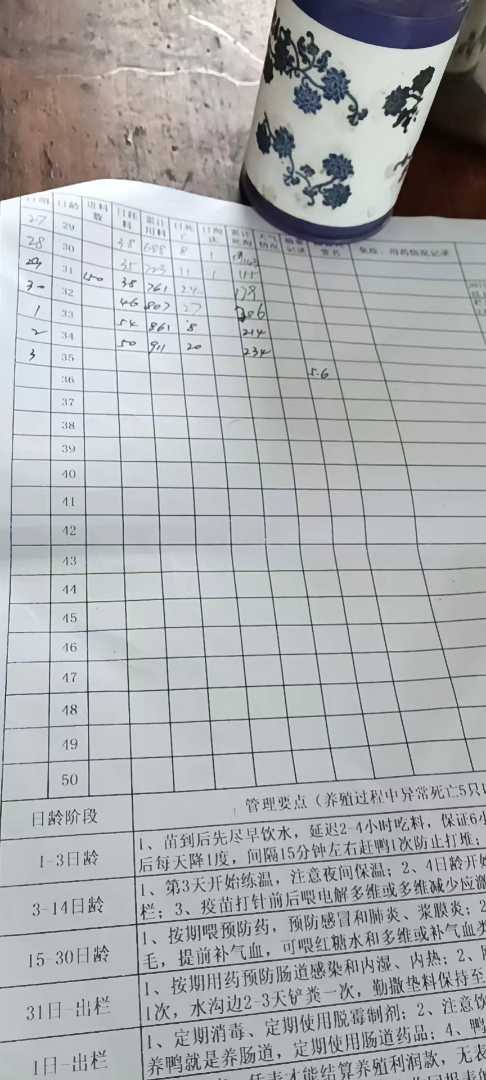 日期 日龄 进料数 日耗料 累计用料 日死 日淘汰 累计死淘 天气情况 签名 免疫、用药情况记录
27 29
28 30 38 688 8 1
29 31 35 723 11 1 115
30 32 150 38 761 24 139
1 33 46 807 27
2 34 54 861 8 214
3 35 50 911 20 234
36 5.6
37
38
39
40
41
42
43
44
45
46
47
48
49
50
日龄阶段 管理要点（养殖过程中异常死亡5只以
1-3日龄 1、苗到后先尽早饮水，延迟2-4小时吃料，保证6小
后每天降1度，间隔15分钟左右赶鸭1次防止打堆；
3-14日龄 1、第3天开始练温，注意夜间保温；2、4日龄开始
栏；3、疫苗打针前后喂电解多维或多维减少应激
15-30日龄 1、按期喂预防药，预防感冒和肺炎、浆膜炎；2
毛，提前补气血，可喂红糖水和多维或补气血类
31日-出栏 1、按期用药预防肠道感染和内湿、内热；2、
1次，水沟边2-3天铲粪一次，勤撒垫料保持至
1日-出栏 1、定期消毒、定期使用脱霉制剂；2、注意饮
养鸭就是养肠道，定期使用肠道药品；4、鸭
任表才能结算养殖利润款，无表